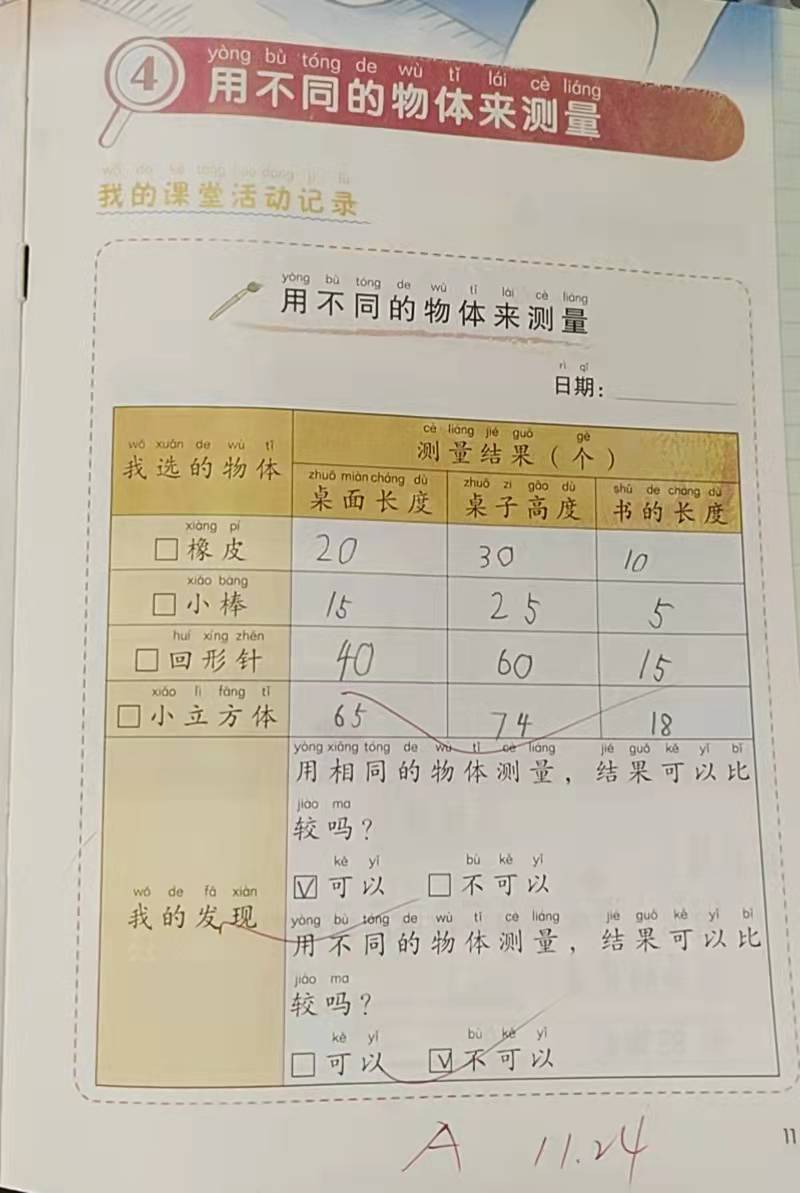 yòng bù tóng de wù tǐ lái cè liáng
4 用不同的物体来测量
wǒ de kè táng huó dòng jì lù
我的课堂活动记录
yòng bù tóng de wù tǐ lái cè liáng
用不同的物体来测量
rì qī
日期：
wǒ xuǎn de wù tǐ
我选的物体
cè liáng jié guǒ gè
测量结果（个）
zhuō miàn cháng dù zhuō zi gāo dù shū de cháng dù
桌面长度 桌子高度 书的长度
xiàng pí
□橡皮 20 30 10
xiǎo bàng
□小棒 15 25 5
huí xíng zhēn
□回形针 40 60 15
xiǎo lì fāng tǐ
□小立方体 65 74 18
wǒ de fā xiàn
我的发现
yòng xiāng tóng de wù tǐ cè liáng jié guǒ kě yǐ bǐ
用相同的物体测量，结果可以比
jiào ma
较吗？
kě yǐ bù kě yǐ
☑可以 □不可以
yòng bù tóng de wù tǐ cè liáng jié guǒ kě yǐ bǐ
用不同的物体测量，结果可以比
jiào ma
较吗？
kě yǐ bù kě yǐ
□可以 ☑不可以
A 11.24
11